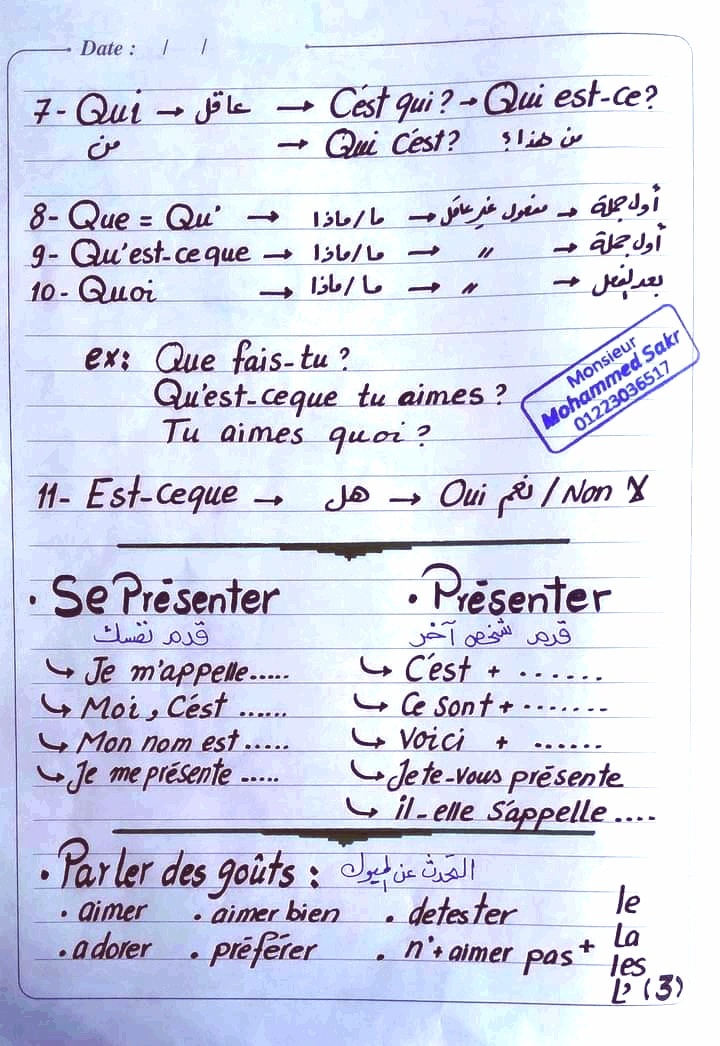 Date : / /
7- Qui → عاقل → C'est qui? → Qui est-ce?
من → Qui c'est? من هذا؟
8- Que = Qu' → ما/ماذا → مفعول غير عاقل → أول جملة
9- Qu'est-ce que → ما/ماذا → " → أول جملة
10- Quoi → ما/ماذا → " → بعد الفعل
ex: Que fais-tu ?
Qu'est-ceque tu aimes ?
Tu aimes quoi ?
Monsieur
Mohammed Sakr
01223036517
11- Est-ceque → هل → Oui نعم / Non لا
• Se Présenter
قدم نفسك
↳ Je m'appelle.....
↳ Moi, C'est ......
↳ Mon nom est .....
↳ Je me présente .....
• Présenter
قدم شخص آخر
↳ C'est + .......
↳ Ce sont + ........
↳ Voici + ......
↳ Je te-vous présente
↳ il-elle s'appelle ....
• Parler des goûts : التحدث عن الميول
• aimer • aimer bien • detester
• adorer • préférer • n'+aimer pas +
le
La
les
L'
(3)